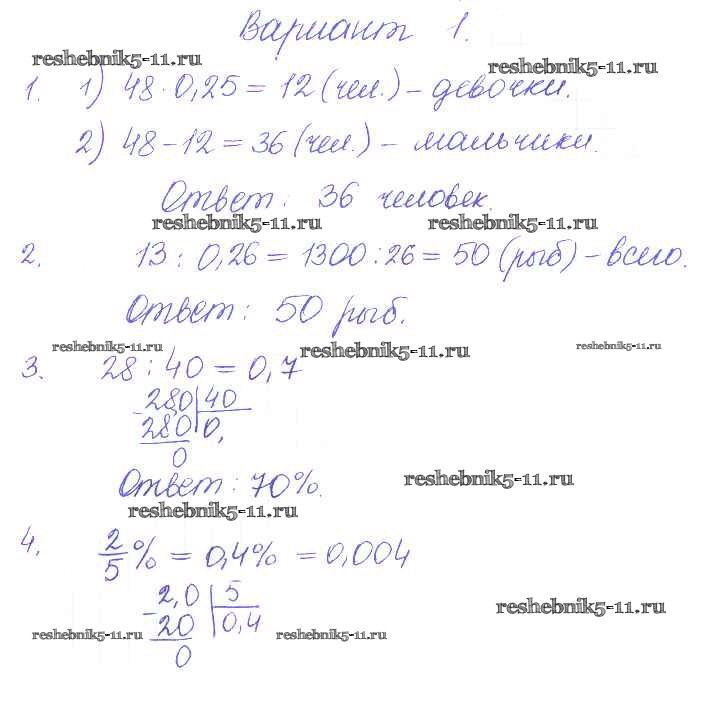 Вариант 1.
reshebnik5-11.ru reshebnik5-11.ru
1. 1) 48 · 0,25 = 12 (чел.) - девочки.
2) 48 - 12 = 36 (чел.) - мальчики.
Ответ: 36 человек.
reshebnik5-11.ru reshebnik5-11.ru
2. 13 : 0,26 = 1300 : 26 = 50 (рыб) - всего.
Ответ: 50 рыб.
reshebnik5-11.ru reshebnik5-11.ru reshebnik5-11.ru
3. 28 : 40 = 0,7
- 28,0 | 40
28 0 | 0,
0
Ответ: 70%.
reshebnik5-11.ru
reshebnik5-11.ru
4. 2/5 % = 0,4% = 0,004
- 2,0 | 5
20 | 0,4
0
reshebnik5-11.ru
reshebnik5-11.ru reshebnik5-11.ru